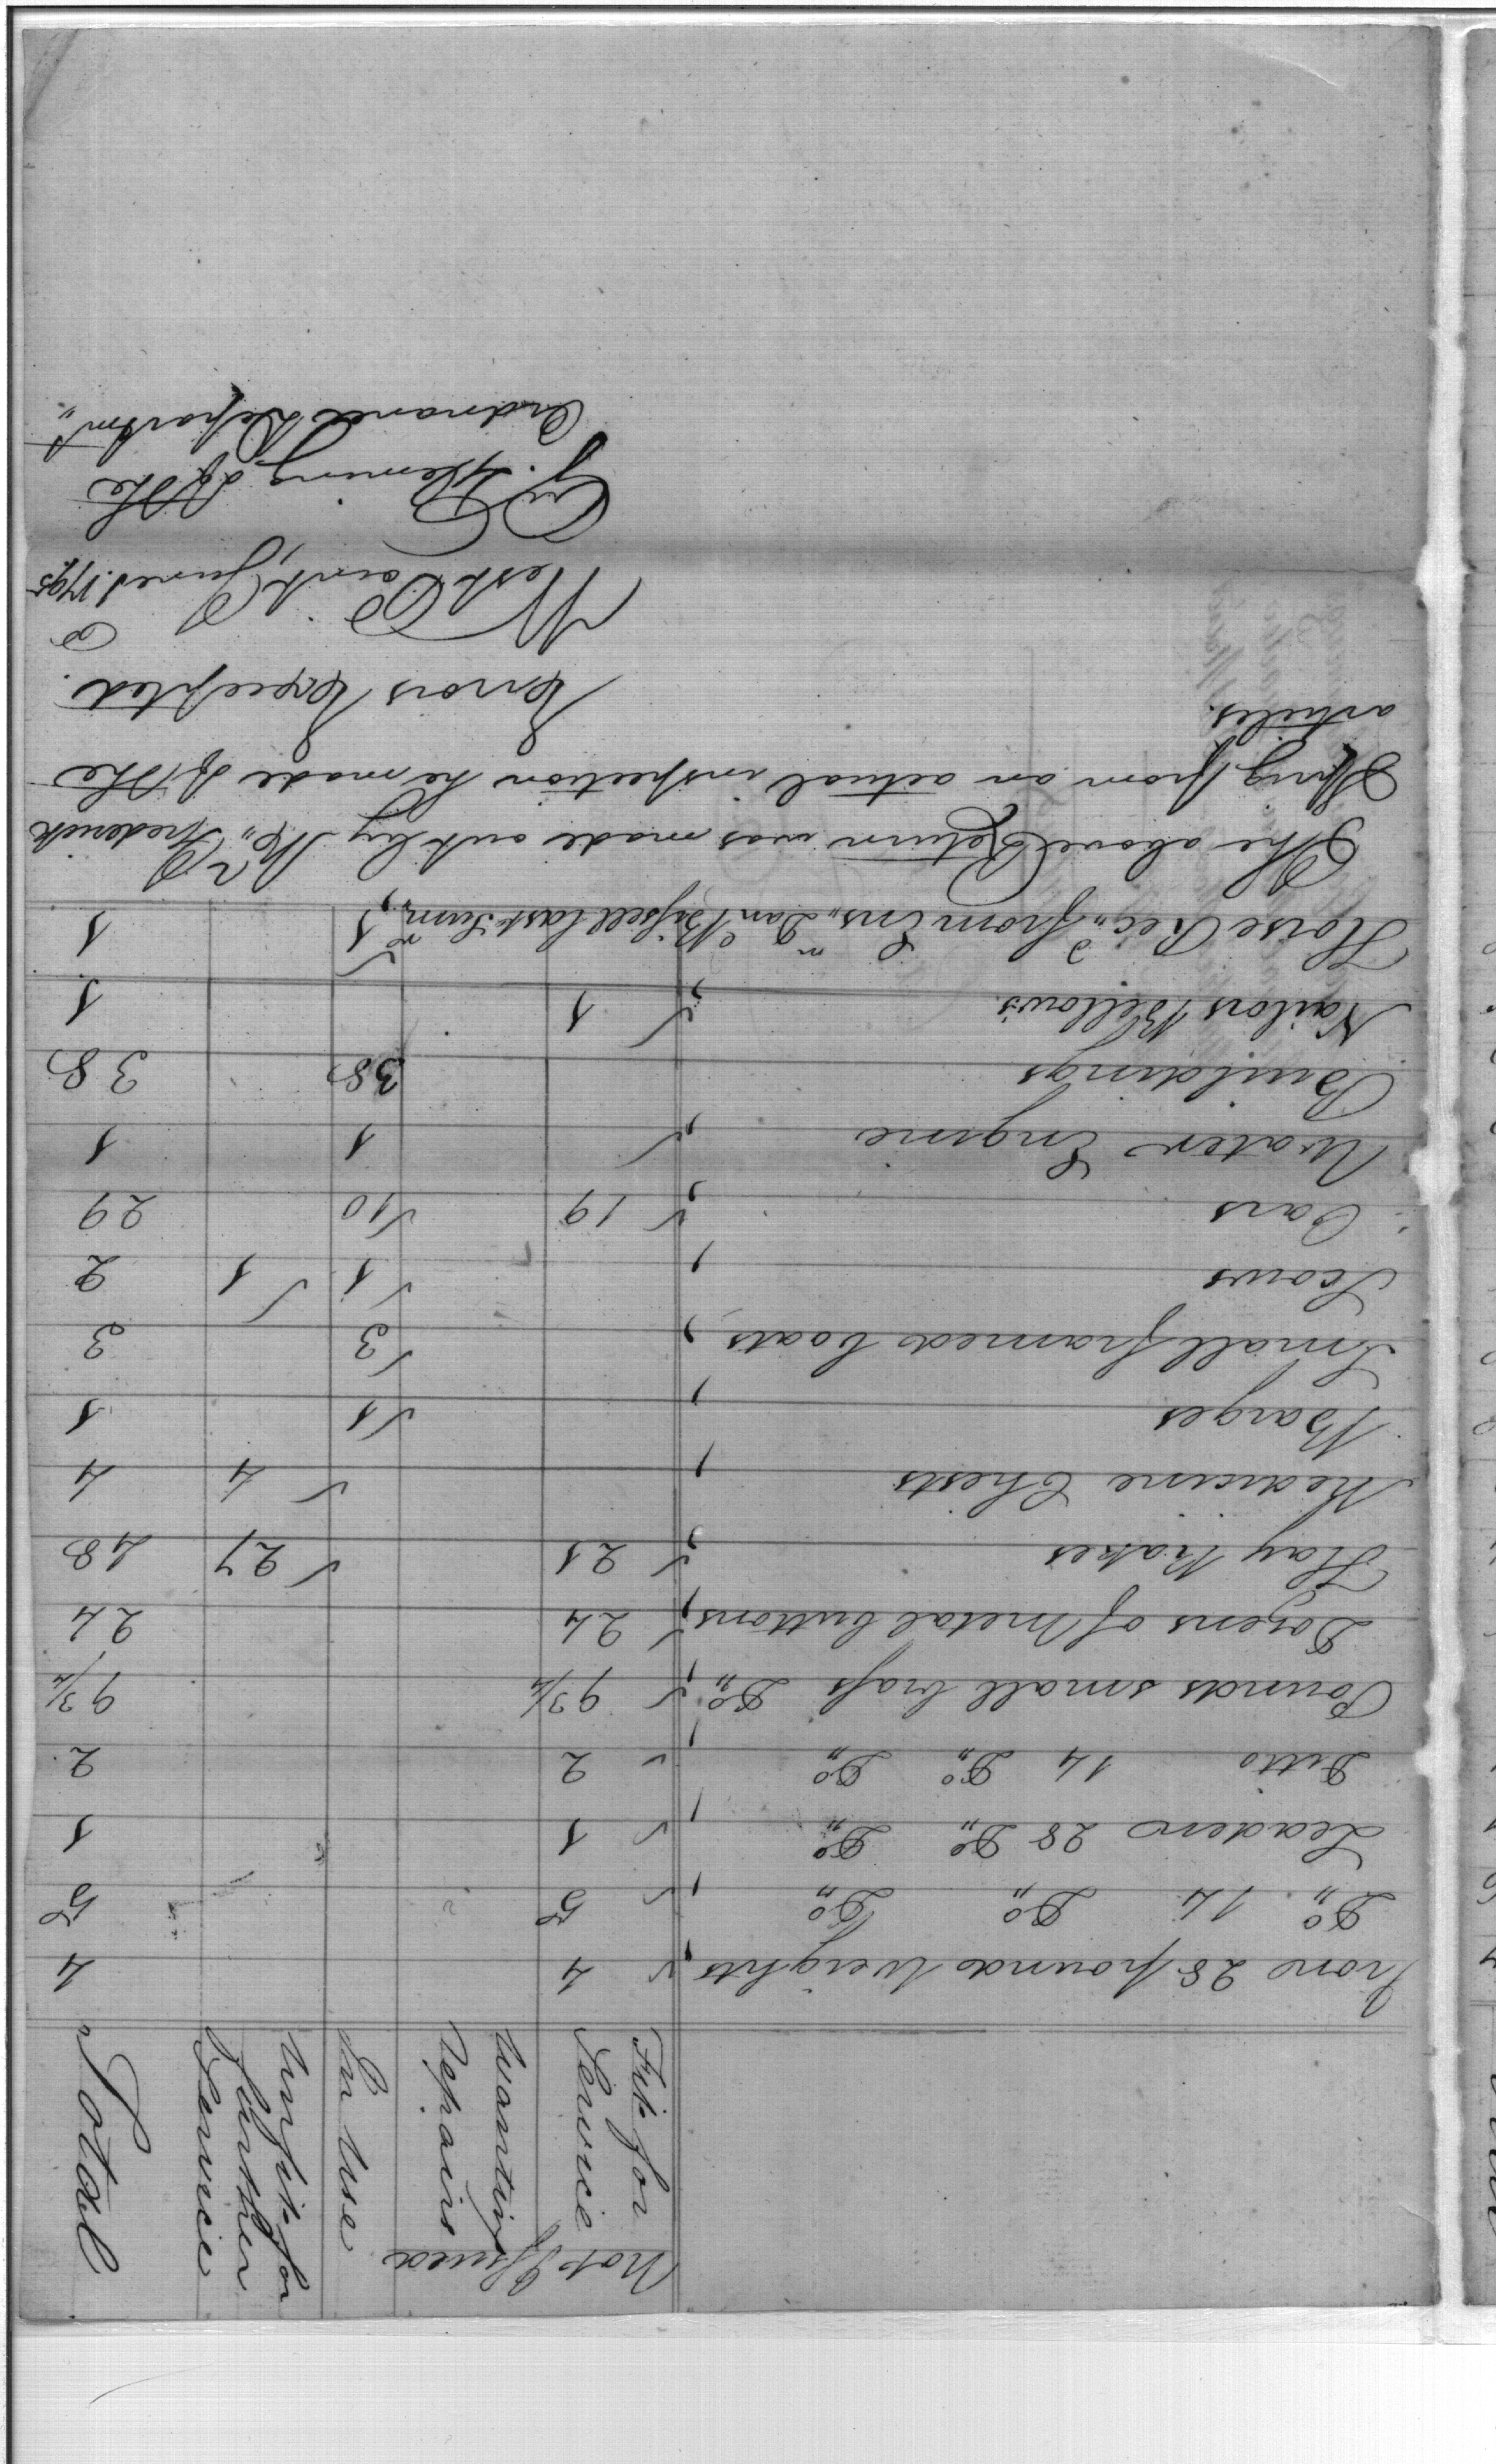 Not Issued
Fit for Service | Wanting Repairs | In Use | Unfit for further Service | Total
Iron 28 pound Weights " 4 4
Do,, 14 Do,, Do,, " 5 5
Leaden 28 Do,, Do,, " 1 1
Ditto 14 Do,, Do,, " 2 2
Pounds small brass Do,, " 9 3/4 9 3/4
Dozens of Metal buttons " 24 24
Hay Rakes " 21 27 48
Medicine Chests " 4 4
Barges " 1 1
Small framed boats " 3 3
Scows " 1 1 2
Oars " 19 10 29
Water Engine " 1 1
Buildings 38 38
Nailors Bellows " 1 1
Horse Rec,,d from Ens,,n Dan Bissell last Sum,,r 1 1
The above Return was made out by Mr,, Frederick
from an actual inspection he made of the
articles.
Errors Excepted.
West Point, June 1795
G. Fleming of the
Ordnance Departmt,,